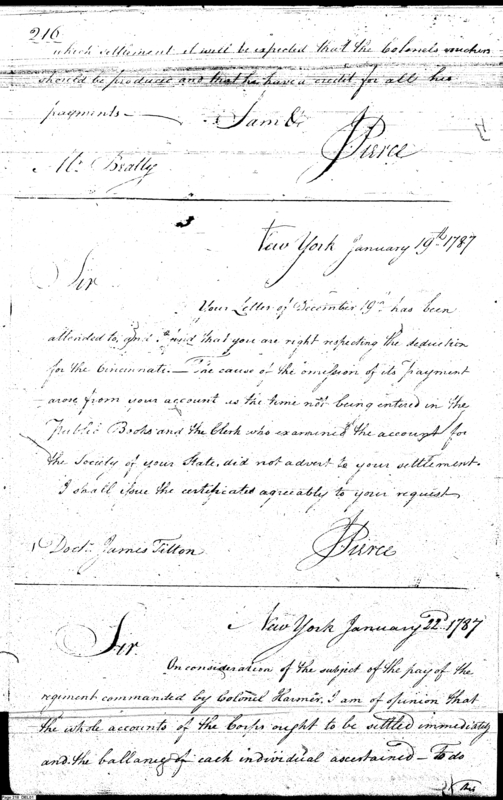 216
which settlement it will be expected that the Colonels vouchers
should be produced and that he have a credit for all his
payments — I am &c
J Pierce
Mr. Beatty
New York January 19th. 1787
Sir
Your Letter of December 19th. has been
attended to, and I find that you are right respecting the deduction
for the Cincinnati. — The cause of the omission of its payment
arose from your account at the time not being entered in the
Public Books and the Clerk who examined the account for
the Society of your State, did not advert to your settlement.
I shall issue the certificates agreeably to your request
J Pierce
Doctr. James Tilton
New York January 22d. 1787
Sir
On consideration of the subject of the pay of the
regiment commanded by Colonel Harmer, I am of opinion that
the whole accounts of the Corps ought to be settled immediately
and the ballance of each individual ascertained — To do
this